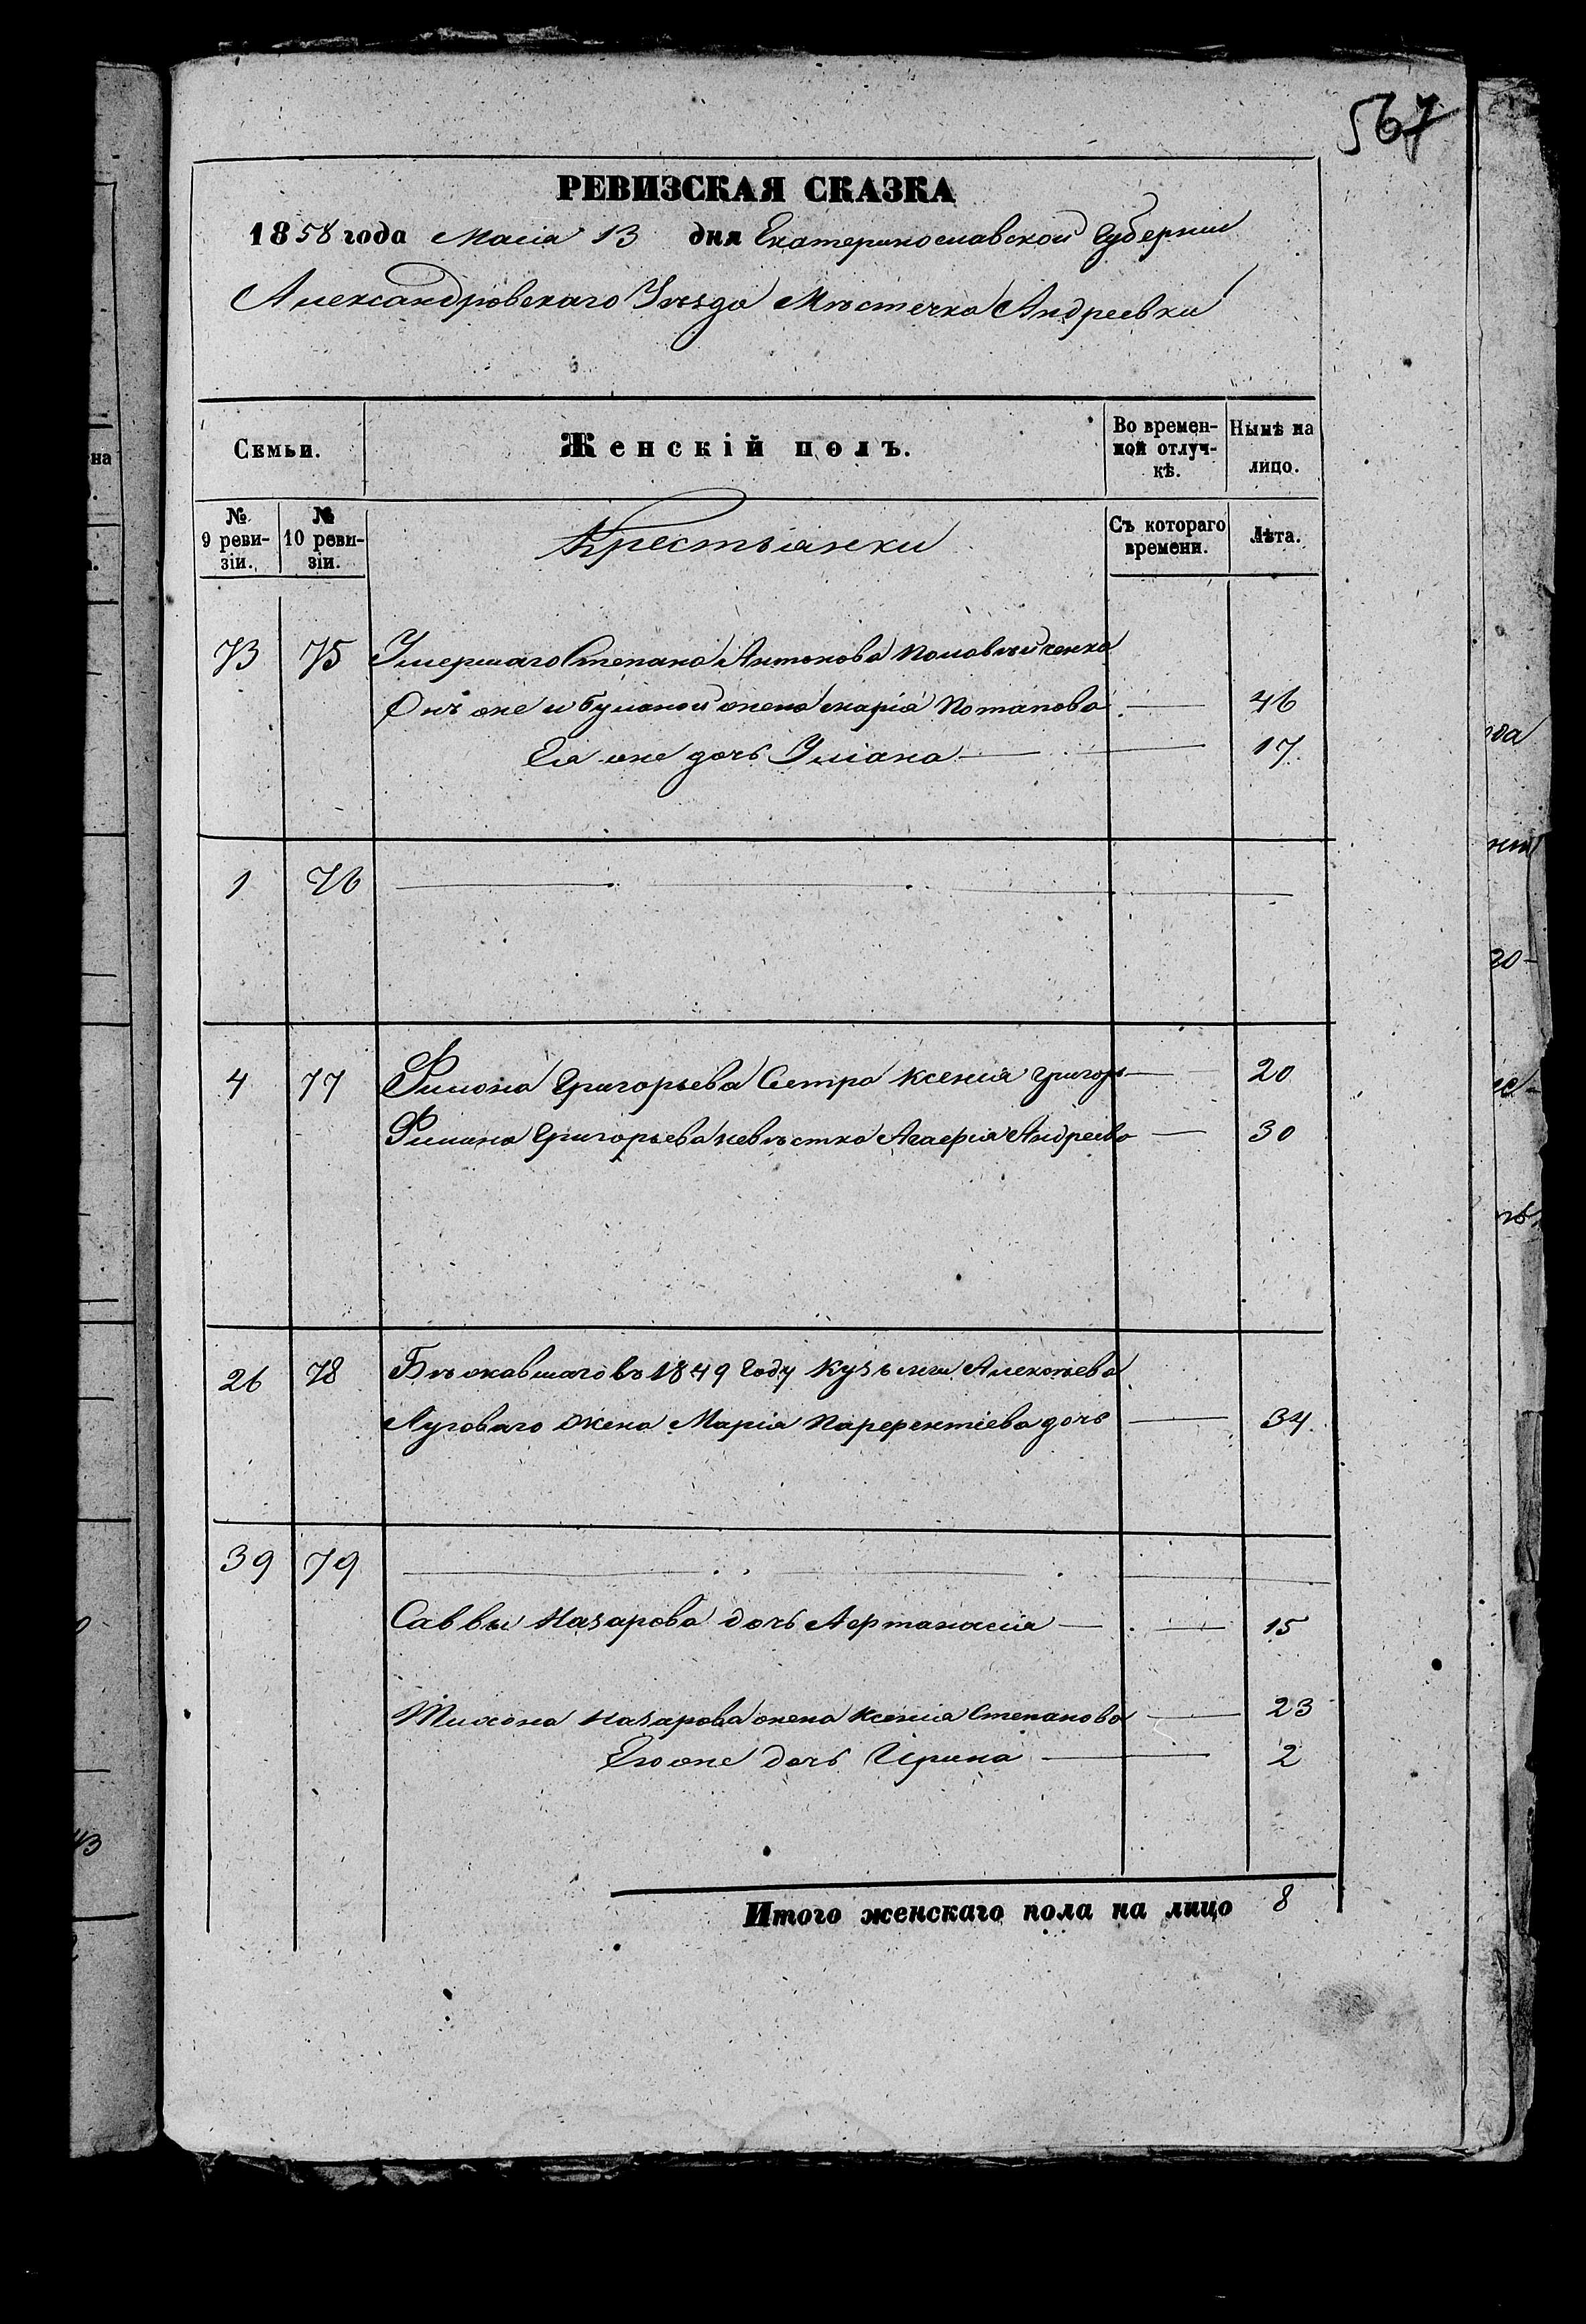 567
РЕВИЗСКАЯ СКАЗКА
1858 года Маія 13 дня Екатеринославской Губерніи
Александровскаго Уѣзда Мѣстечка Андреевки
Семьи. Женскій полъ. Во времен-ной отлуч-кѣ. Нынѣ на лицо.
№ 9 реви-зіи. № 10 реви-зіи. Крестьянки Съ котораго времени. Лѣта.
73 75 Умершаго Степана Антонова
жена Марія Потапова 46
Ея же дочь Уліана 17
1 76
4 77 Филона Григорьева Сестра Ксенія Григорь 20
Филона Григорьева невѣстка Агафія Андреева 30
26 78 Бѣжавшаго въ 1849 Году Кузьмы Алексѣева
Луговаго Жена Марія Парфентіева дочь 34
39 79
Саввы Назарова дочь Афтанасія 15
Тихона Назарова жена Ксенія Степанова 23
Его же дочь Ирина 2
Итого женскаго пола на лицо 8